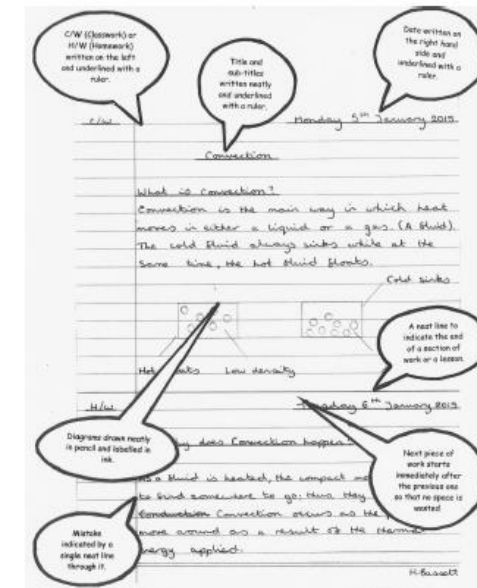 C/W (Classwork) or
H/W (Homework)
written on the left
and underlined with a
ruler.
Title and
sub-titles
written neatly
and underlined
with a ruler.
Date written on
the right hand
side and
underlined with a
ruler.
C/W
Monday 5th January 2015
Convection
What is convection?
Convection is the main way in which heat
moves in either a liquid or a gas. (A fluid).
The cold fluid always sinks while at the
same time, the hot fluid floats.
Cold sinks
Hot
Low density
A neat line to
indicate the end
of a section of
work or a lesson.
H/W
6th January 2015
Diagrams drawn neatly
in pencil and labelled in
ink.
does Convection happen?
Next piece of
work starts
immediately after
the previous one
so that no space is
wasted
a fluid is heated, the compact
to find somewhere to go: thus they
Mistake
indicated by a
single neat line
through it.
Conduction Convection occurs as the
move around as a result of the
applied.
H.Bassett